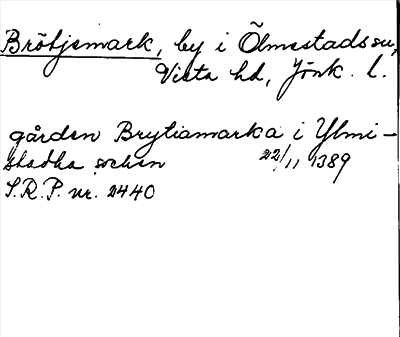 Brötjemark, by i Ölmestads sn,
Vista hd, Jönk. l.
gården Brytiamarka i Ylmi-
stadha soken 22/11 1389
S.R.P. nr. 2440